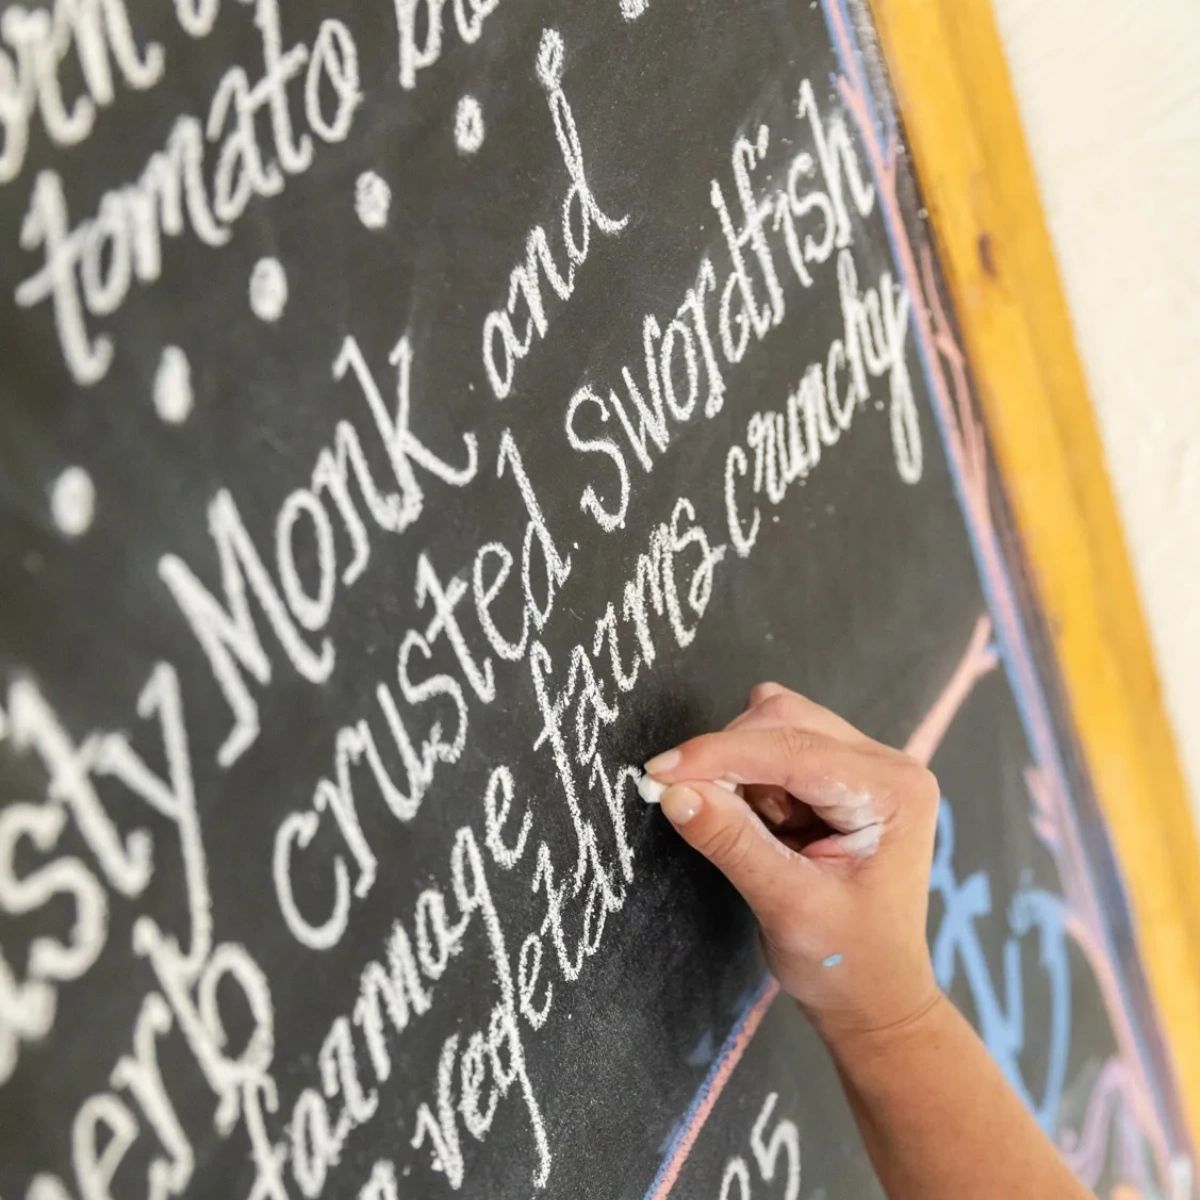 tomato
sty Monk and
herb crusted swordfish
farmage farms crunchy
vegetab